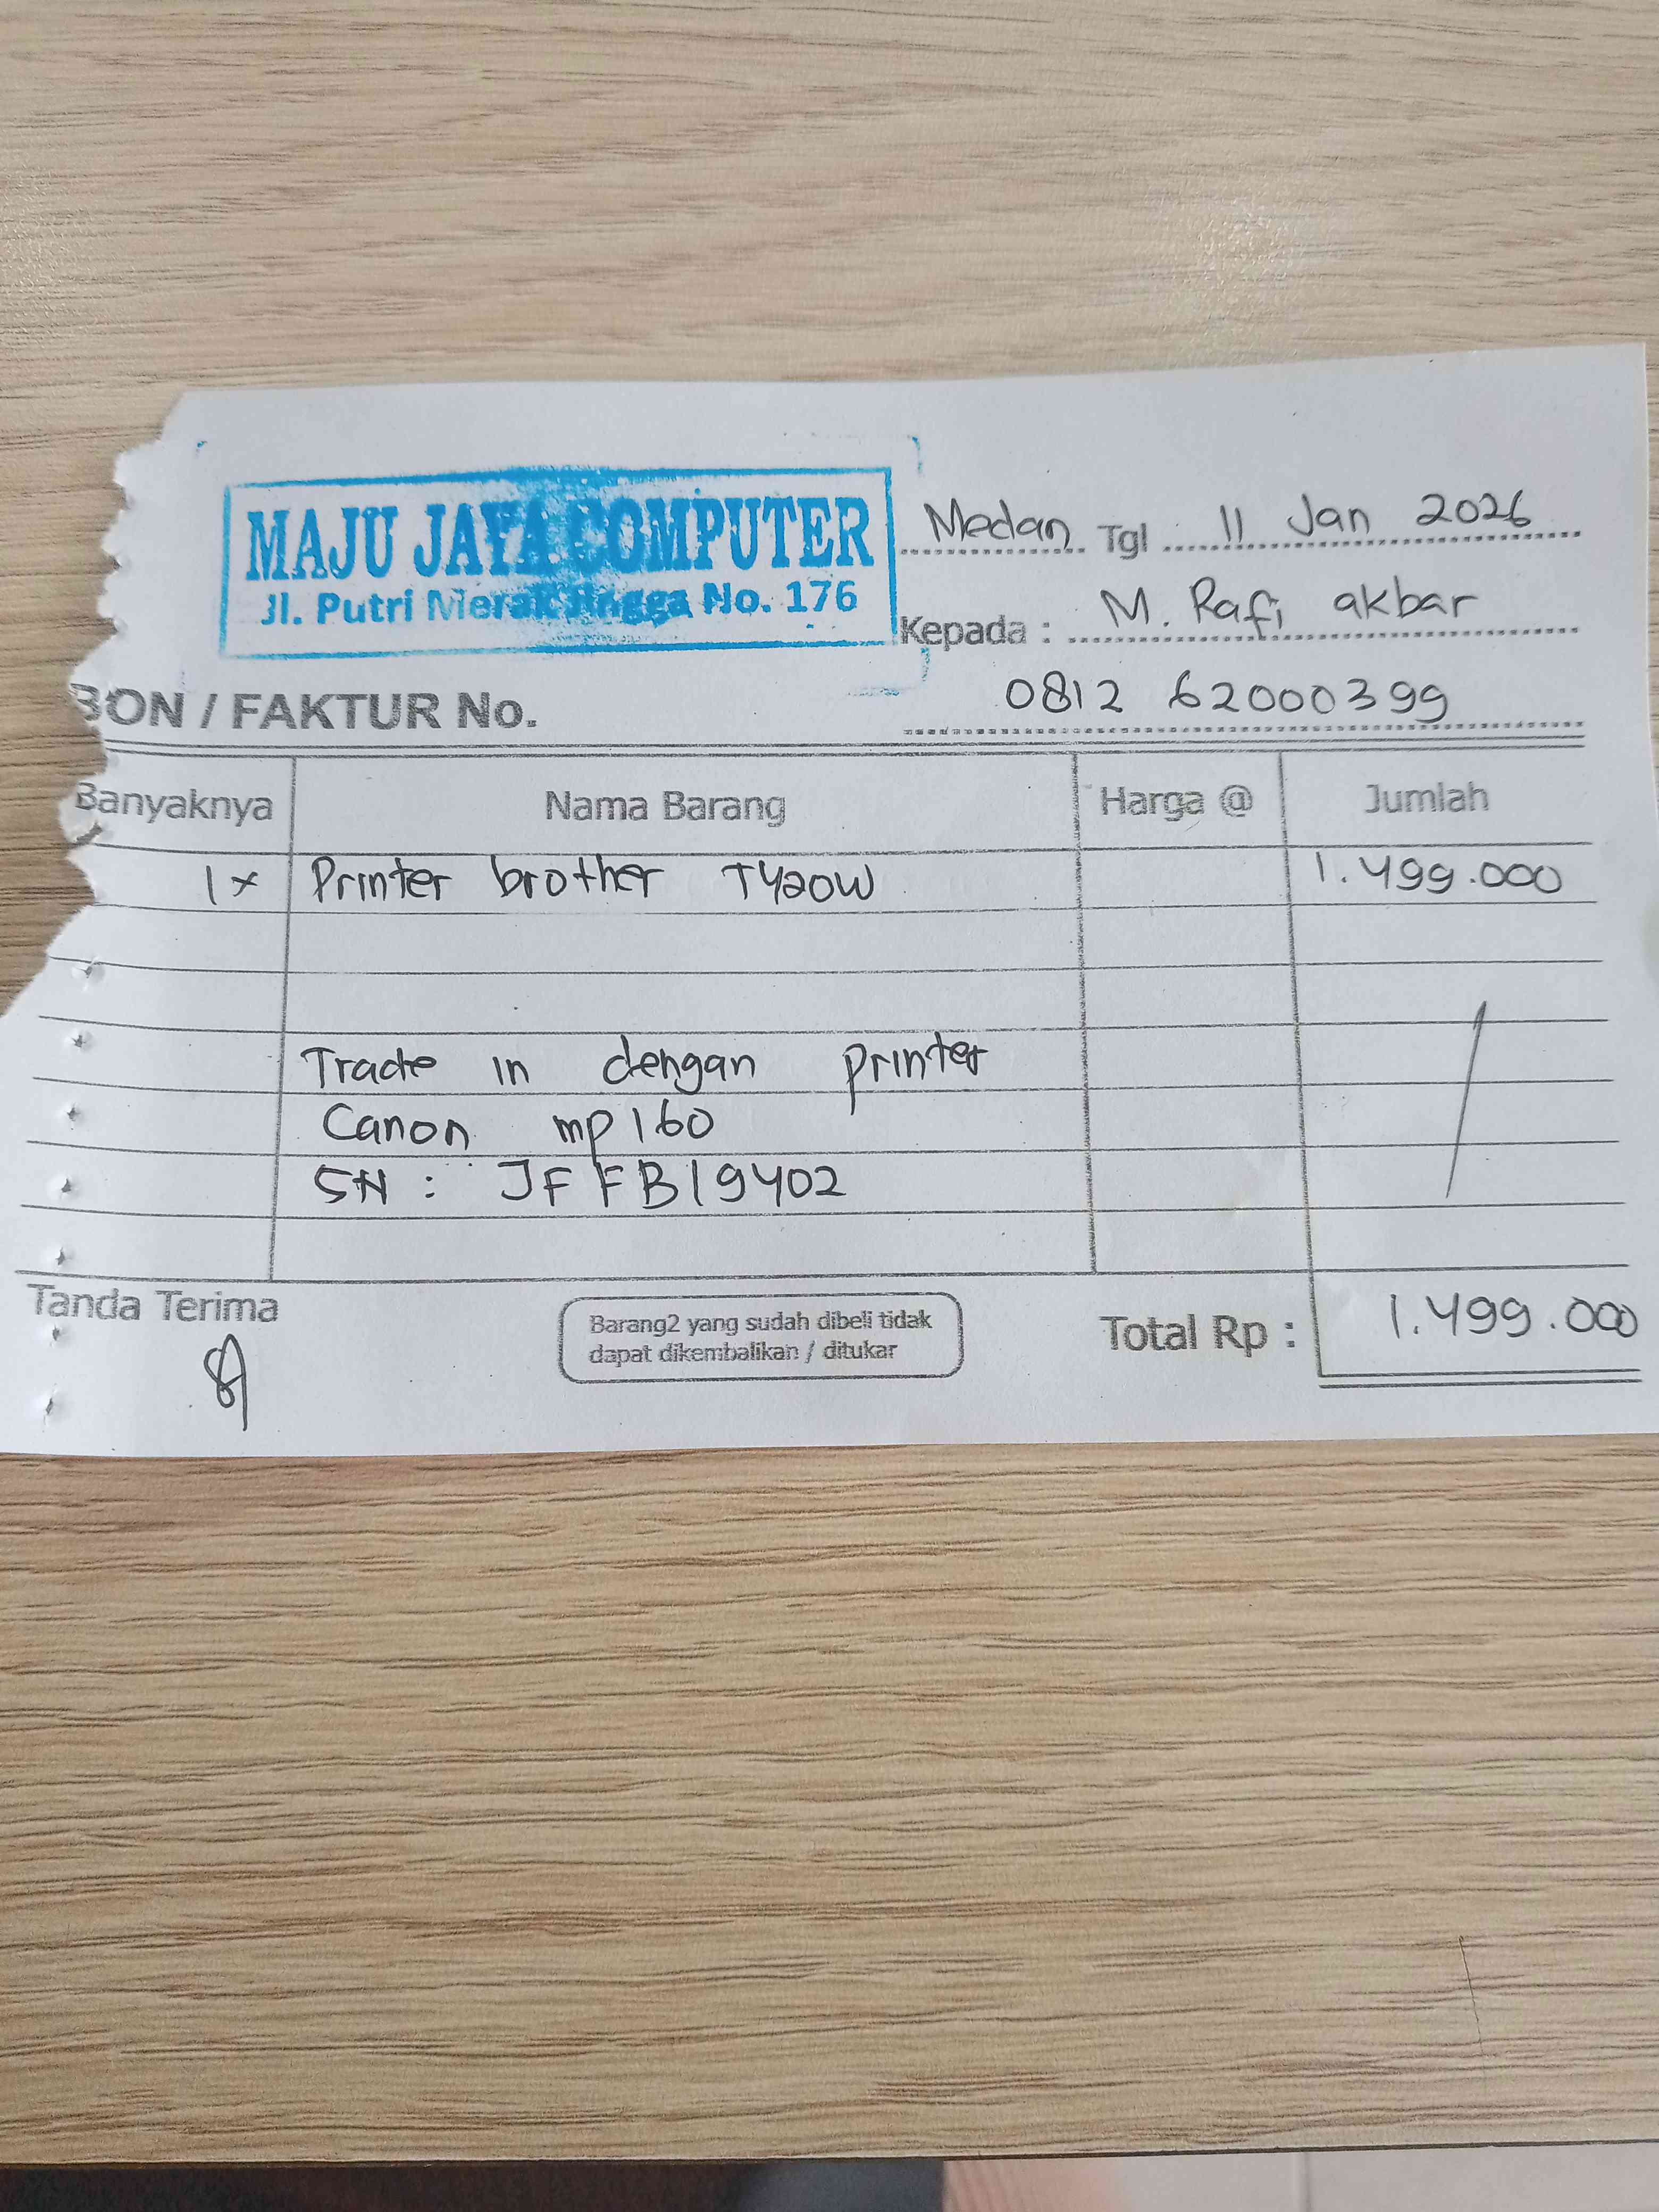 MAJU JAYA COMPUTER
Jl. Putri Merak Jingga No. 176
Medan Tgl 11 Jan 2026
Kepada : M. Rafi akbar
0812 62000399
BON / FAKTUR No.
Banyaknya Nama Barang Harga @ Jumlah
1x Printer brother T420W 1.499.000
Trade in dengan printer
Canon mp160
SN : JFFB19402
Tanda Terima
Barang2 yang sudah dibeli tidak
dapat dikembalikan / ditukar
Total Rp : 1.499.000